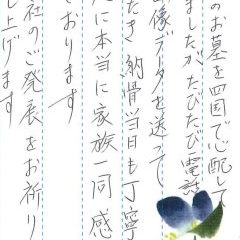 のお墓を四国で心配して
ましたが、たびたび電話
像データを送って
たき 納骨当日も丁寧
に本当に家族一同 感
ております
社のご発展をお祈り
し上げます